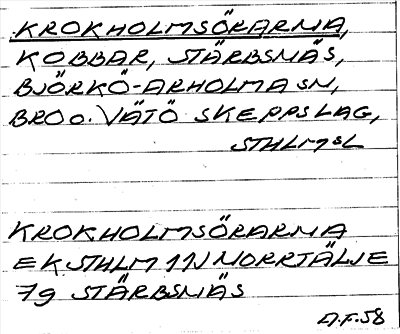 KROKHOLMSÖRARNA,
KOBBAR, STÄRBSNÄS,
BJÖRKÖ-ARHOLMA SN,
BRO O. VÄTÖ SKEPPSLAG,
STHLMSL
KROKHOLMSÖRARNA
EK STHLM 1 N NORRTÄLJE
79 STÄRBSNÄS
A.F.58